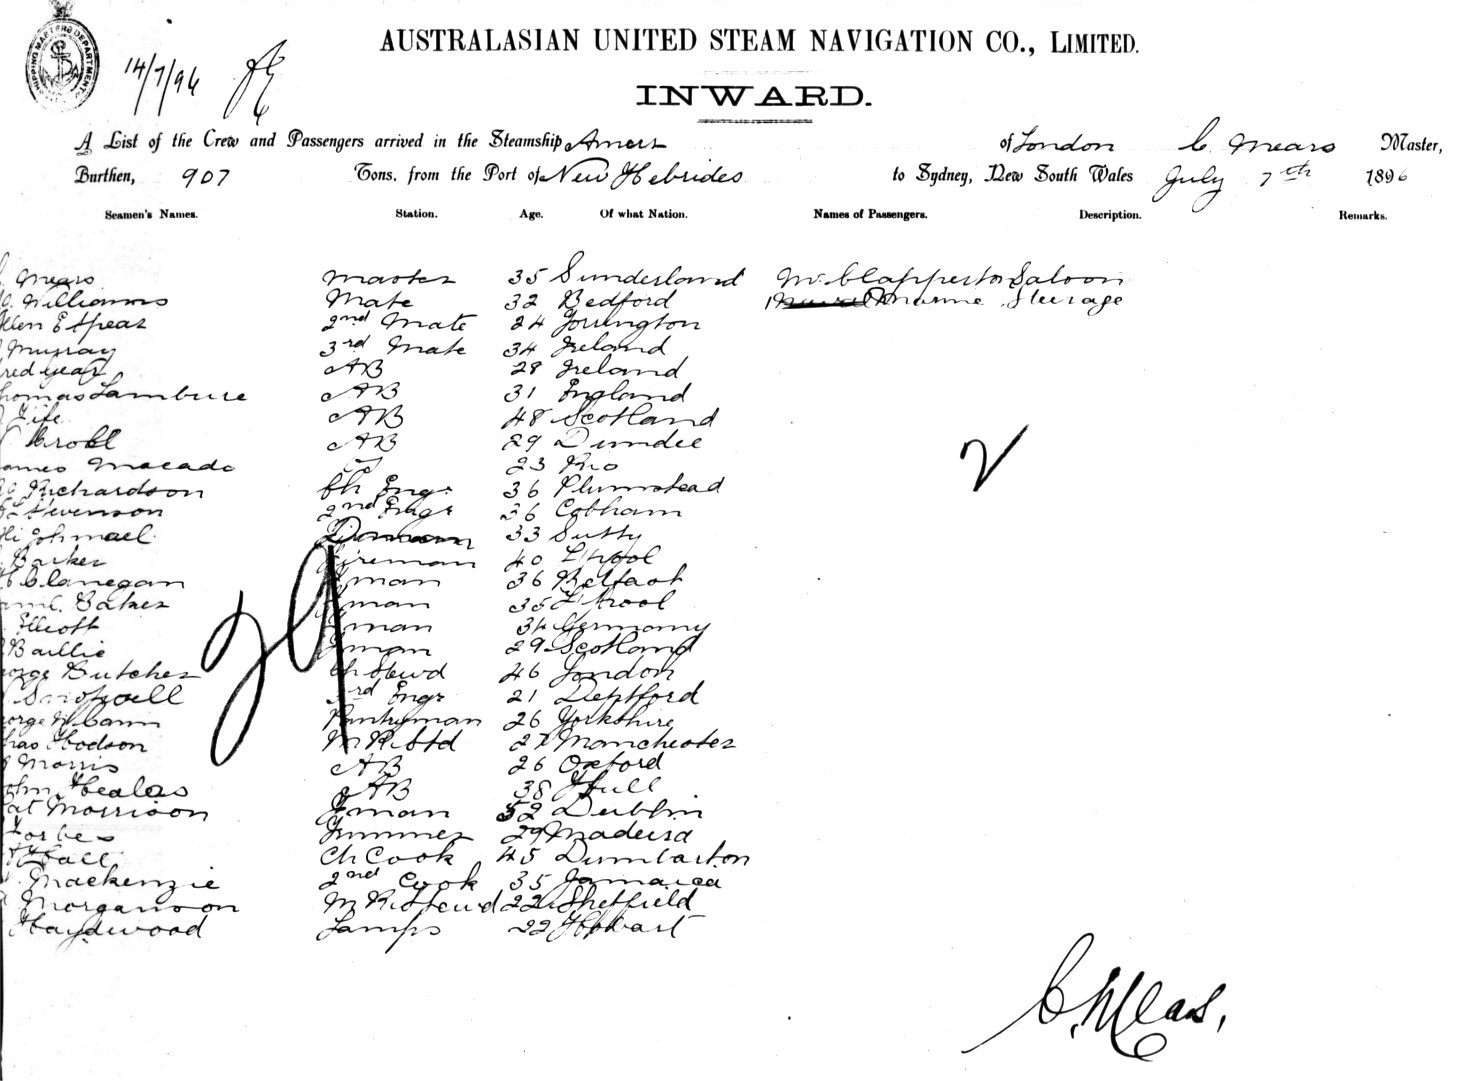 SHIPPING MASTERS DEPARTMENT
14/7/96
AUSTRALASIAN UNITED STEAM NAVIGATION CO., LIMITED.
INWARD.
A List of the Crew and Passengers arrived in the Steamship of London C. Mears Master,
Burthen, 907 Tons, from the Port of New Hebrides to Sydney, New South Wales July 7th 1896
Seamen's Names. Station. Age. Of what Nation. Names of Passengers. Description. Remarks.
Mears Master 35 Sunderland Mr Clapperton Saloon
Williams Mate 32 Bedford Steerage
2nd Mate 24 Torrington
Murray 3rd Mate 34 Ireland
AB 28 Ireland
homas Lambure AB 31 England
Fife AB 48 Scotland
AB 29 Dundee
ames Macado 23 Rio
Richardson Ch Engr 36 Plumstead
Stevenson 2nd Engr 36 Cobham
Ishmael 33
Barker Fireman 40 L'pool
Clanegan Fman 36 Belfast
Baker Fman 35 L'pool
Elliott Fman 34 Germany
Baillie Fman 29 Scotland
eorge Butcher Ch Stewd 46 London
3rd Engr 21 Deptford
eorge W Cann Pantryman 26 Yorkshire
has Hodson M R Std 27 Manchester
Morris AB 26 Oxford
ohn Healas AB 38 Hull
at Morrison Fman 52 Dublin
Forbes Trimmer 29 Madeira
Hall Ch Cook 45 Dumbarton
Mackenzie 2nd Cook 35 Jamaica
Morganson M R Stewd 22 Sheffield
Haydwood Lamps 22 Hobart
29
2
C. Mears,